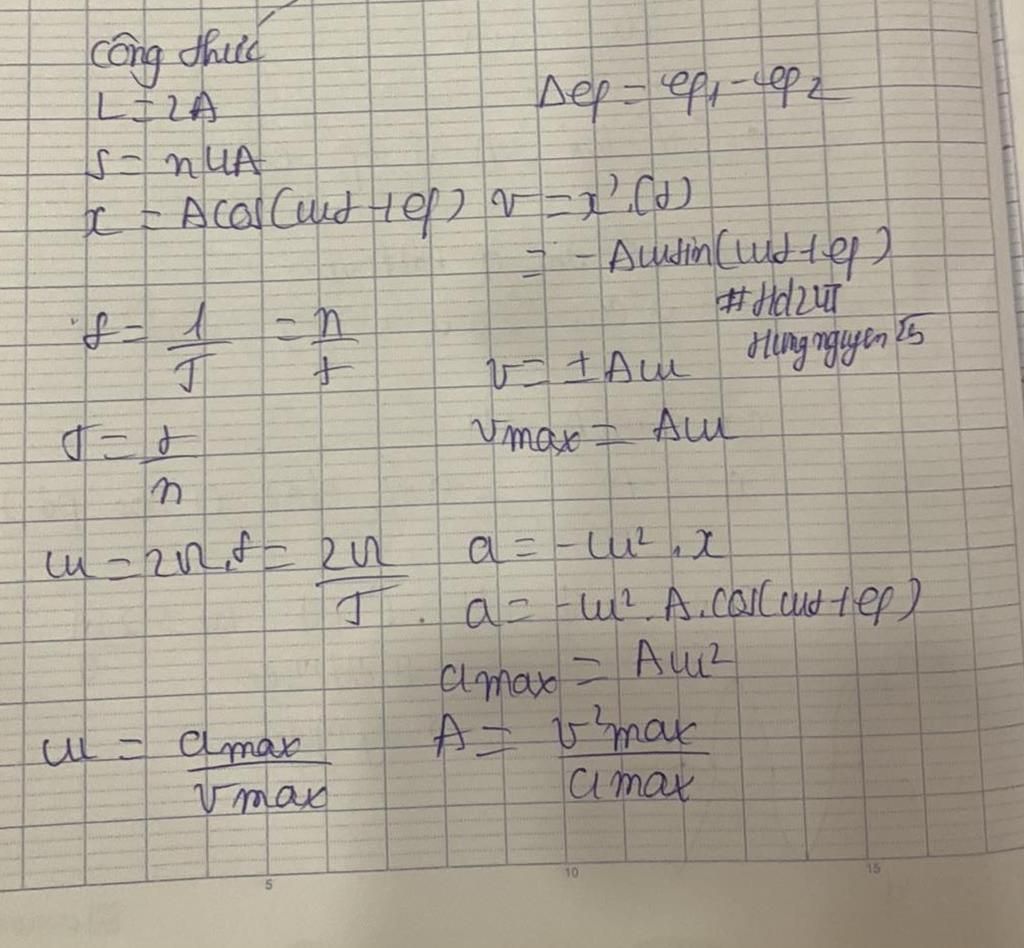 Công thức
L = 2A
Δφ = φ₁ - φ₂
S = n4A
x = Acos(ωt + φ)
v = x'.(t)
= - Aωsin(ωt + φ)
#Hd24T
Hungnguyen 25
f = 1/T = n/t
v = ± Aω
T = t/n
vmax = Aω
ω = 2π.f = 2π/T
a = -ω².x
a = -ω².A.cos(ωt + φ)
amax = Aω²
ω = amax/vmax
A = v²max/amax
5 10 15